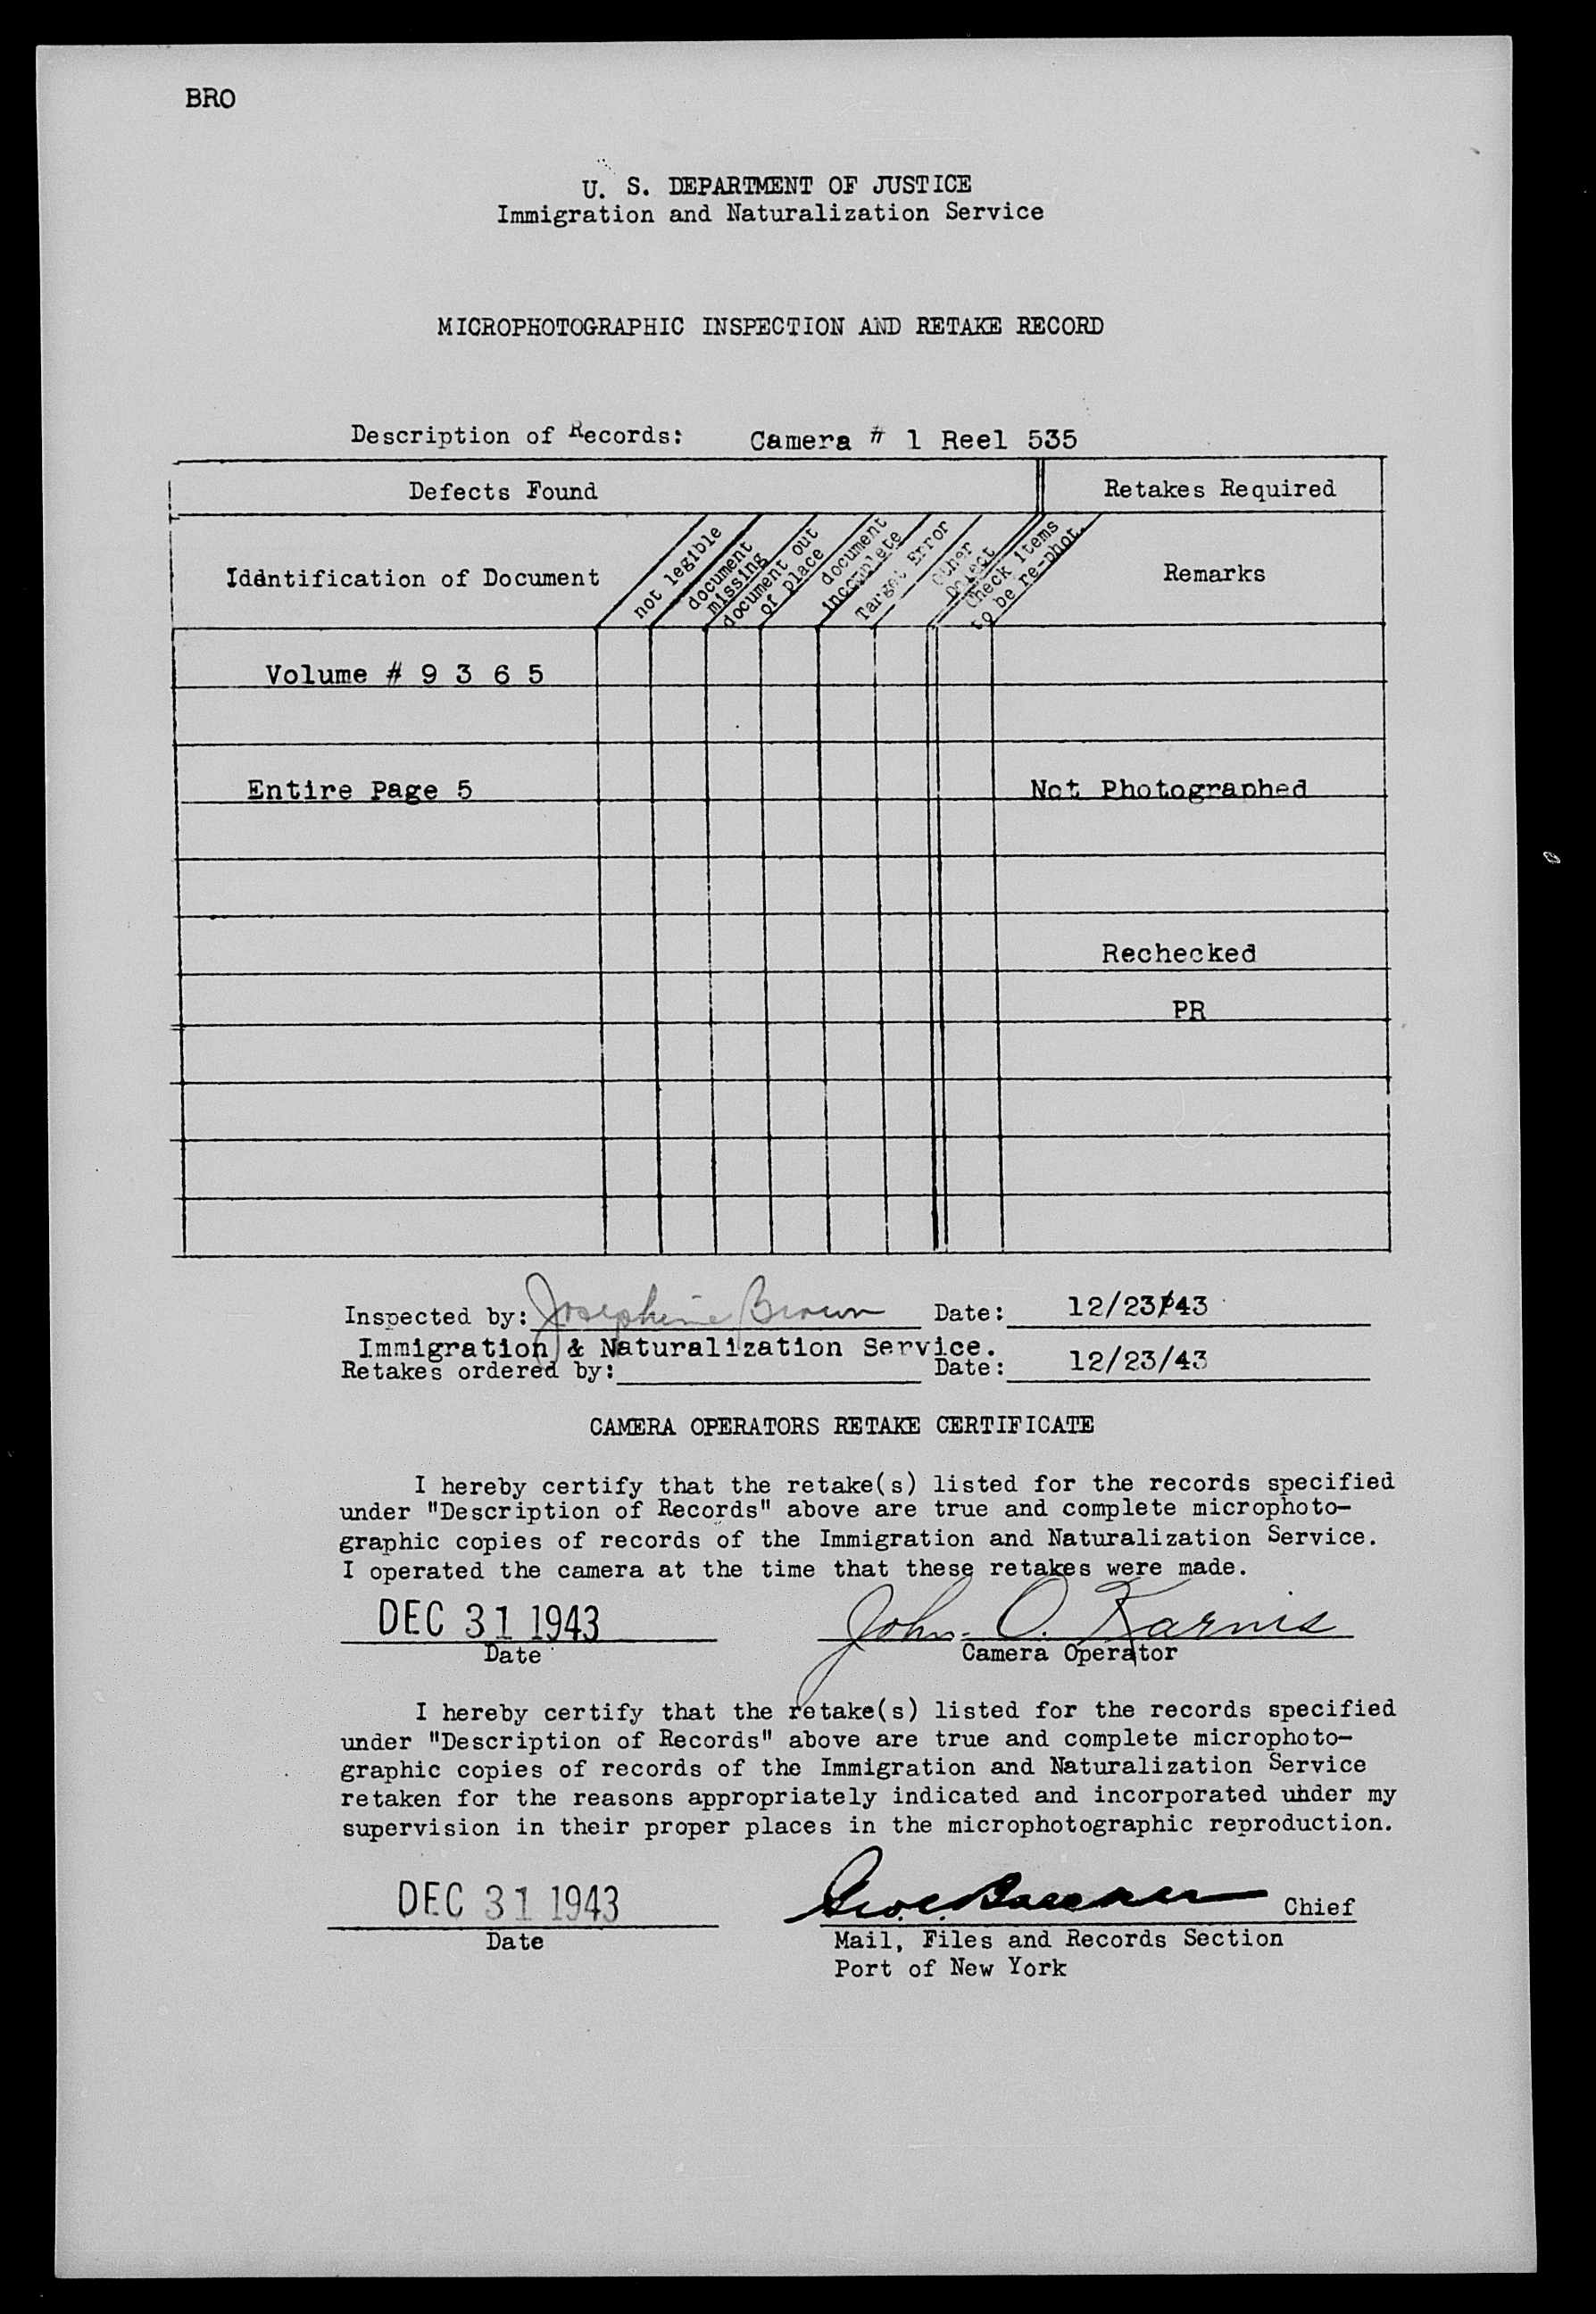 BRO
U. S. DEPARTMENT OF JUSTICE
Immigration and Naturalization Service
MICROPHOTOGRAPHIC INSPECTION AND RETAKE RECORD
Description of Records: Camera # 1 Reel 535
Defects Found
Retakes Required
Identification of Document
not legible
document
missing
document out
of place
document
incomplete
Target Error
Other
Defect
Check items
to be re-phot.
Remarks
Volume # 9 3 6 5
Entire Page 5
Not Photographed
Rechecked
PR
Inspected by: Josephine Brown Date: 12/23/43
Immigration & Naturalization Service.
Retakes ordered by: Date: 12/23/43
CAMERA OPERATORS RETAKE CERTIFICATE
I hereby certify that the retake(s) listed for the records specified
under "Description of Records" above are true and complete microphoto-
graphic copies of records of the Immigration and Naturalization Service.
I operated the camera at the time that these retakes were made.
DEC 31 1943 John O. Karnis
Date Camera Operator
I hereby certify that the retake(s) listed for the records specified
under "Description of Records" above are true and complete microphoto-
graphic copies of records of the Immigration and Naturalization Service
retaken for the reasons appropriately indicated and incorporated under my
supervision in their proper places in the microphotographic reproduction.
DEC 31 1943 Chief
Date Mail, Files and Records Section
Port of New York